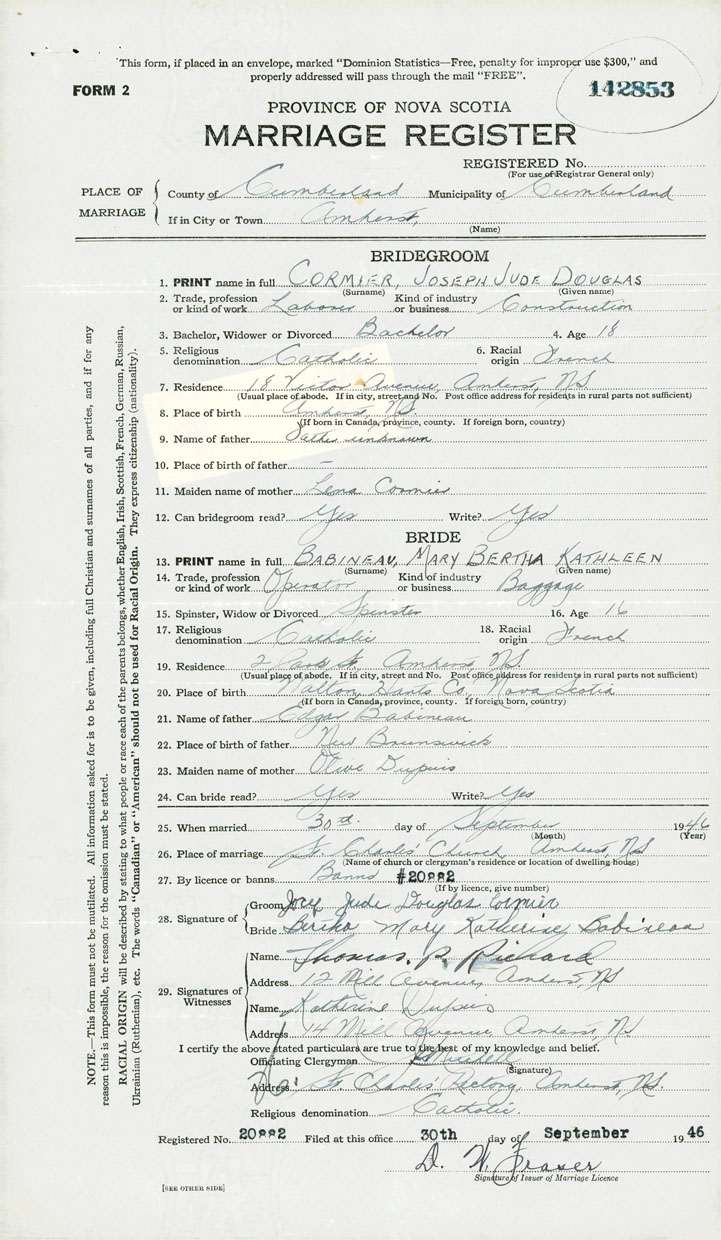 This form, if placed in an envelope, marked “Dominion Statistics—Free, penalty for improper use $300,” and
properly addressed will pass through the mail “FREE”.
FORM 2
142853
PROVINCE OF NOVA SCOTIA
MARRIAGE REGISTER
REGISTERED No.
(For use of Registrar General only)
PLACE OF MARRIAGE
County of Cumberland Municipality of Cumberland
If in City or Town Amherst,
(Name)
BRIDEGROOM
1. PRINT name in full CORMIER, JOSEPH JUDE DOUGLAS
(Surname) (Given name)
2. Trade, profession or kind of work Laborer Kind of industry or business Construction
3. Bachelor, Widower or Divorced Bachelor 4. Age 18
5. Religious denomination Catholic 6. Racial origin French
7. Residence 18 Victor Avenue, Amherst, NS
(Usual place of abode. If in city, street and No. Post office address for residents in rural parts not sufficient)
8. Place of birth Amherst, NS.
(If born in Canada, province, county. If foreign born, country)
9. Name of father father unknown
10. Place of birth of father –
11. Maiden name of mother Lena Cormier
12. Can bridegroom read? Yes Write? Yes
BRIDE
13. PRINT name in full BABINEAU, MARY BERTHA KATHLEEN
(Surname) (Given name)
14. Trade, profession or kind of work Operator Kind of industry or business Baggage
15. Spinster, Widow or Divorced Spinster 16. Age 16
17. Religious denomination Catholic 18. Racial origin French
19. Residence 2 Park St. Amherst, NS.
(Usual place of abode. If in city, street and No. Post office address for residents in rural parts not sufficient)
20. Place of birth Walton, Hants Co., Nova Scotia
(If born in Canada, province, county. If foreign born, country)
21. Name of father Edgar Babineau
22. Place of birth of father New Brunswick
23. Maiden name of mother Olive Dupuis
24. Can bride read? Yes Write? Yes
25. When married 30th day of September 1946
(Month) (Year)
26. Place of marriage St. Charles' Church, Amherst, NS
(Name of church or clergyman's residence or location of dwelling house)
27. By licence or banns Banns #20882
(If by licence, give number)
28. Signature of
Groom Jude Douglas Cormier
Bride Bertha Mary Katherine Babineau
29. Signatures of Witnesses
Name Thomas. P. Richard
Address 12 Mill Avenue, Amherst, NS
Name Katherine Dupuis
Address 14 Mill Avenue, Amherst, NS
I certify the above stated particulars are true to the best of my knowledge and belief.
Officiating Clergyman
(Signature)
Address St. Charles' Rectory, Amherst, NS.
Religious denomination Catholic.
Registered No. 20882 Filed at this office 30th day of September 1946
D. W. Fraser
Signature of Issuer of Marriage Licence
[SEE OTHER SIDE]
NOTE.—This form must not be mutilated. All information asked for is to be given, including full Christian and surnames of all parties, and if for any
reason this is impossible, the reason for the omission must be stated.
RACIAL ORIGIN will be described by stating to what people or race each of the parents belongs, whether English, Irish, Scottish, French, German, Russian,
Ukrainian (Ruthenian), etc. The words “Canadian” or “American” should not be used for Racial Origin. They express citizenship (nationality).